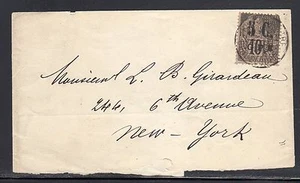 5 C.
10
Monsieur L. B. Girardeau
244, 6th Avenue
New-York